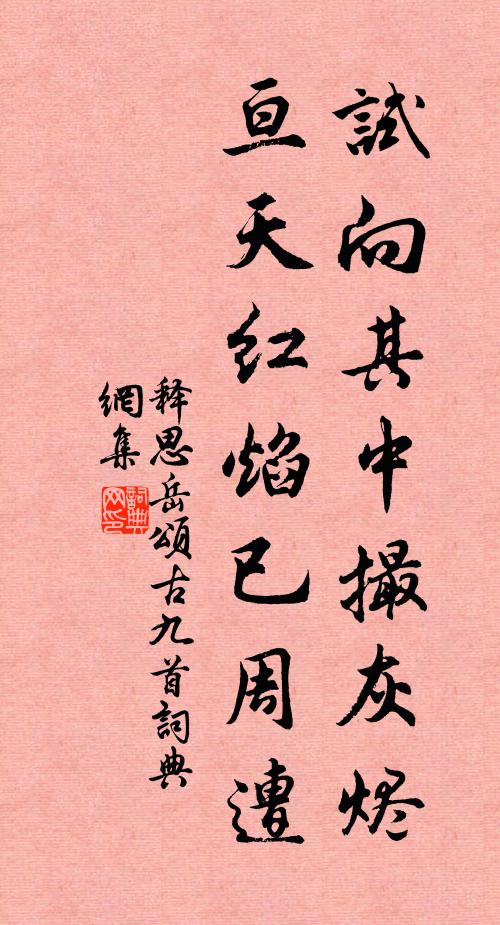 試向其中撮灰烬
亘天红焰已周遭
释思岳頌古九首詞典
網集
詞典
网印